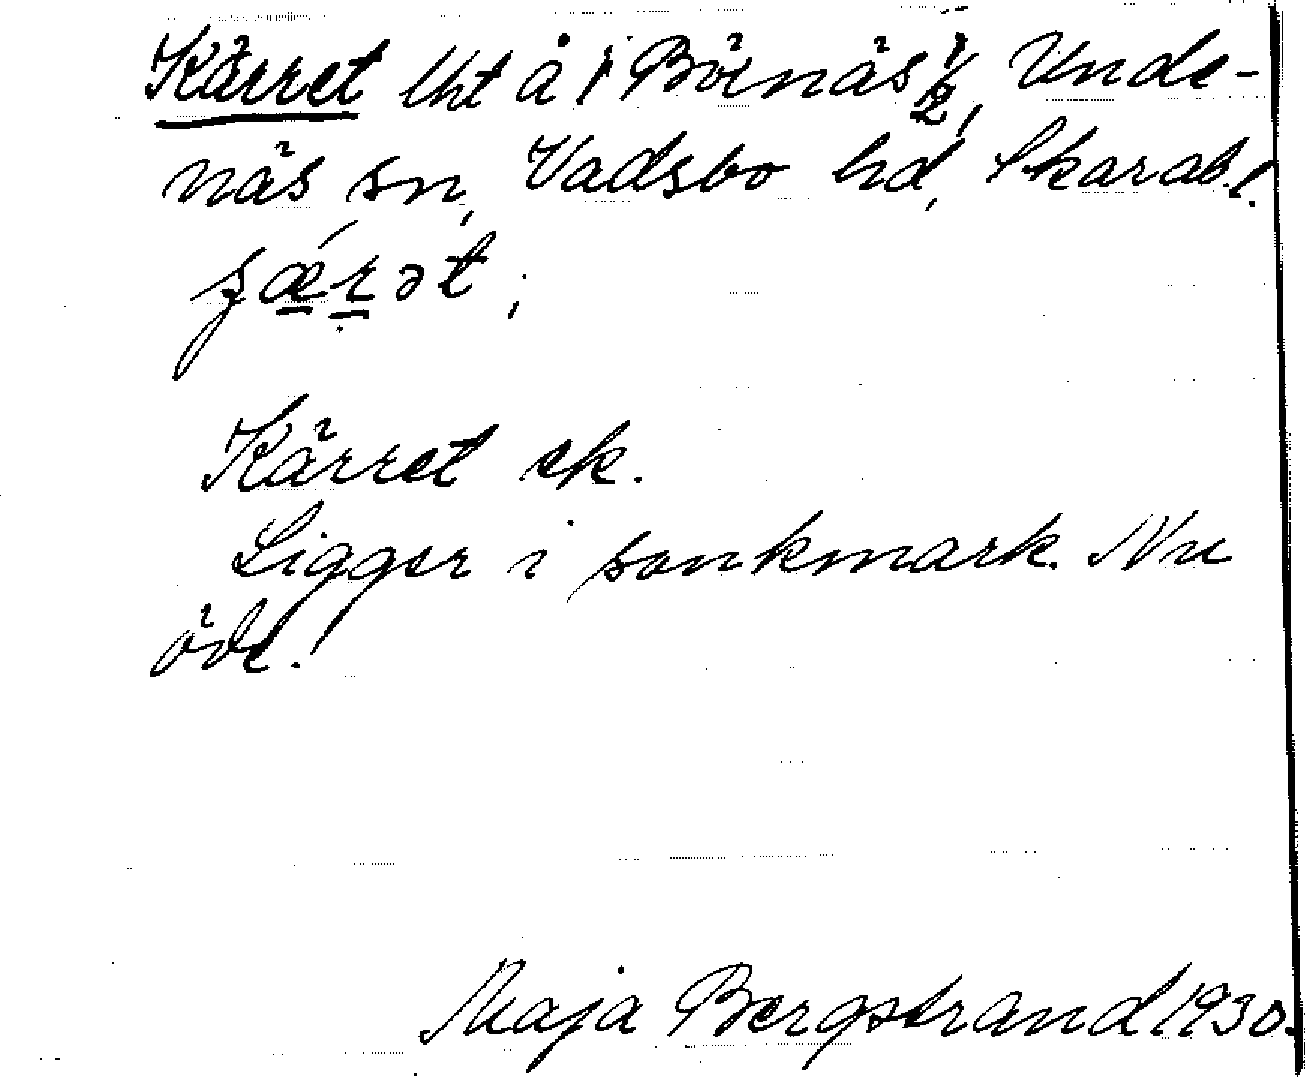 Kärret lht å 1 Börnäs ½, Unde-
näs sn, Vadsbo hd, Skarab.l.
ʂǽ̠r̠ət ;
Kärret ek.
Ligger i sankmark. Nu
öde!
Maja Bergstrand 1930.